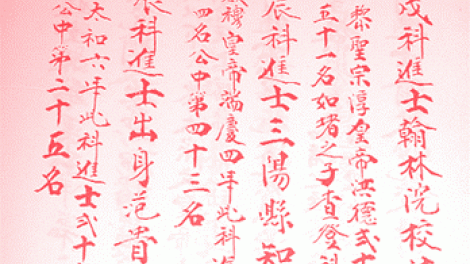 戌科進士翰林院校
黎聖宗淳皇帝洪德弍十
五十一名如堵之子杳登科
辰科進士三陽縣知
穆皇帝端慶四年此科進
四名公中第四十三名
辰科進士出身范貴
太和六年此科進士弍十
公中第二十五名